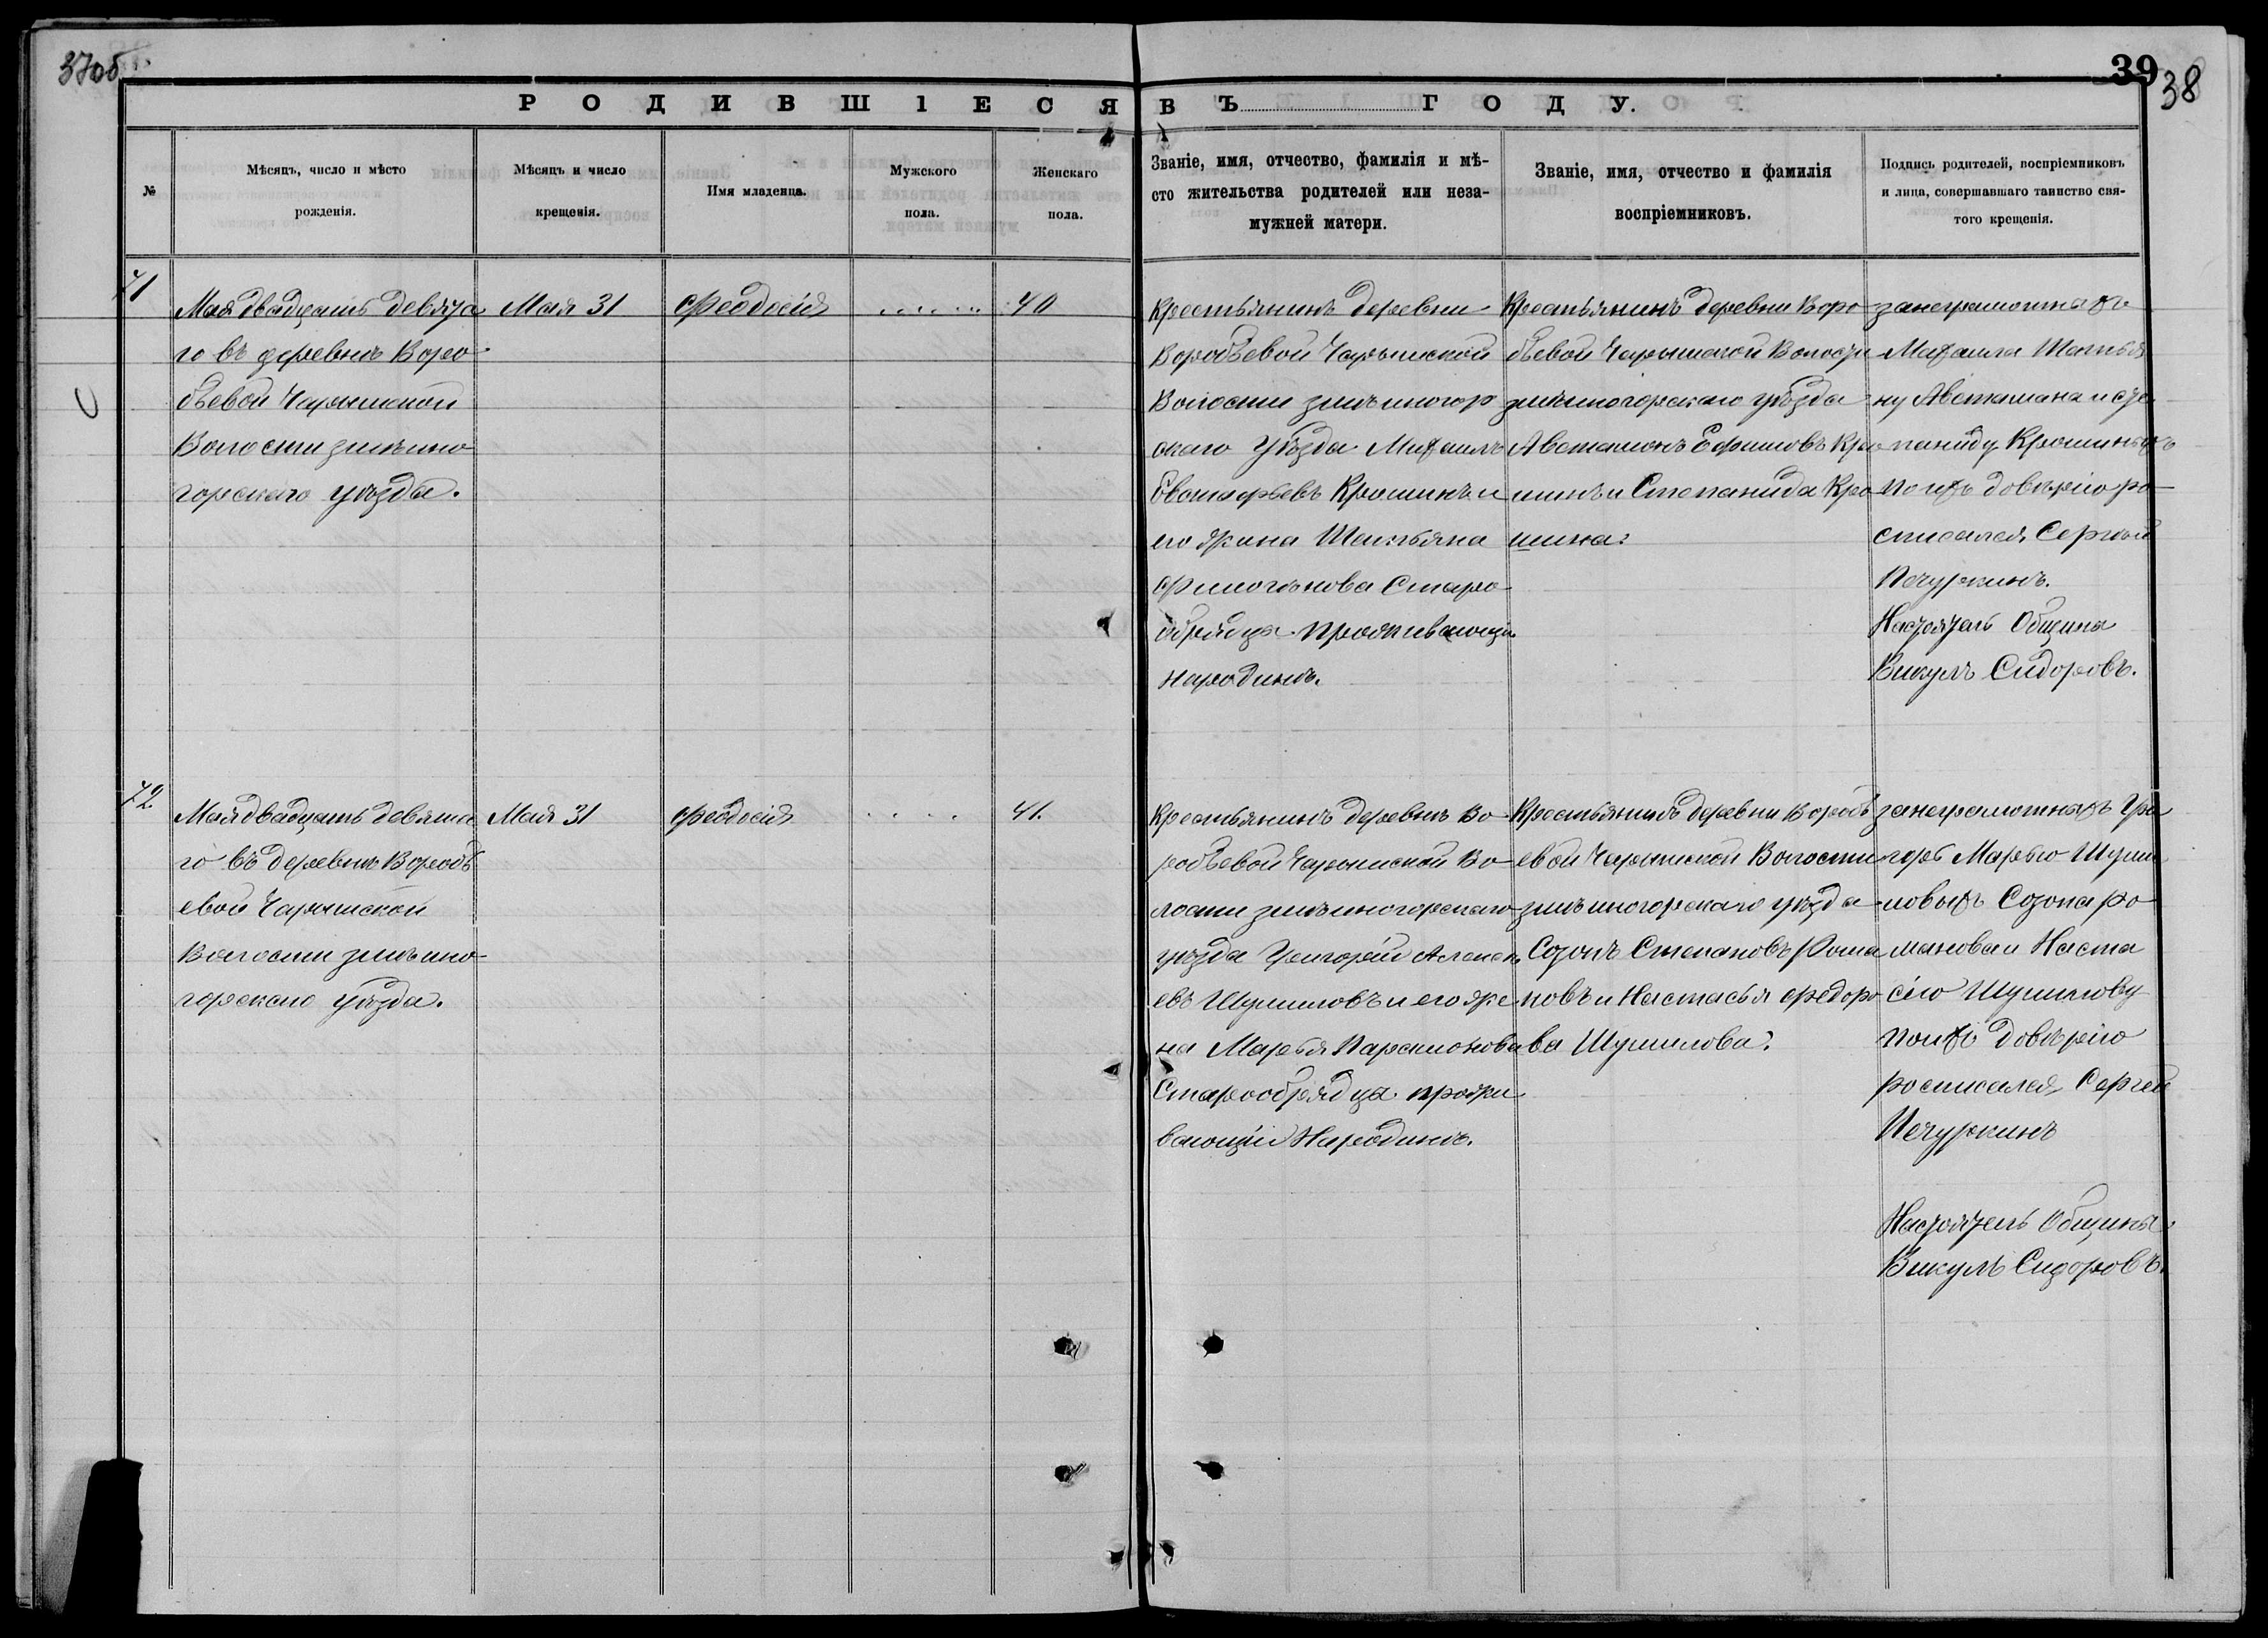 37об.
39
38
РОДИВШІЕСЯ ВЪ ГОДУ.
№
Мѣсяцъ, число и мѣсто
рожденія.
Мѣсяцъ и число
крещенія.
Имя младенца.
Мужского
пола.
Женскаго
пола.
Званіе, имя, отчество, фамилія и мѣ-
сто жительства родителей или неза-
мужней матери.
Званіе, имя, отчество и фамилія
воспріемниковъ.
Подпись родителей, воспріемниковъ
и лица, совершавшаго таинство свя-
того крещенія.
71
Мая двадцать девята
го въ деревнѣ Воро
бьевой Чарышской
Волости змѣино
горскаго уѣзда.
Мая 31
Феодосія
......
40
Крестьянинъ деревни
Воробьевой Чарышской
Волости змѣиногор
скаго Уѣзда Михаилъ
Евстафьевъ Крошинъ и
его Жина Шатьяна
Филогѣнова Старо
обрядца проживающи
народинѣ.
Крестьянинъ деревни Воро
бьевой Чарышской Волости
змѣиногорскаго уѣзда
Автамонъ Ефимовъ Кро
шинъ и Степанида Кро
шина.
занеграмотныхъ
Михаила Шатья
ну Автамана и сте
паниду Крошиныхъ
по ихъ довѣрію ро
списался Сергѣй
Печуркинъ.
Настоятель Общины
Викулъ Сидоровъ.
72.
Мая двадцать девята
го въ деревнѣ Воробь
евой Чарышской
Волости змѣино-
горскаго уѣзда.
Мая 31
Феодосія
....
41.
Крестьянинъ деревнѣ Во
робьевой Чарышской Во-
лости змѣиногорскаго
уѣзда Григорій Алексѣ
евъ Шумиловъ и его же
на Марья Парамонова
Старообрядца прожи
вающіи Народинѣ.
Крестьянинъ деревни Воробь
евой Чарышской Волости
змѣиногорскаго уѣзда
Созонъ Степановъ Рома
новъ и Настасья Федоро
ва Шумилова.
занеграмотныхъ Гри
горя Марью Шуми
ловыхъ Созона Ро
манова и Наста
сію Шумилову
по ихъ довѣрію
росписался Сергей
Печуркинъ
Настоятель Общины
Викулъ Сидоровъ.